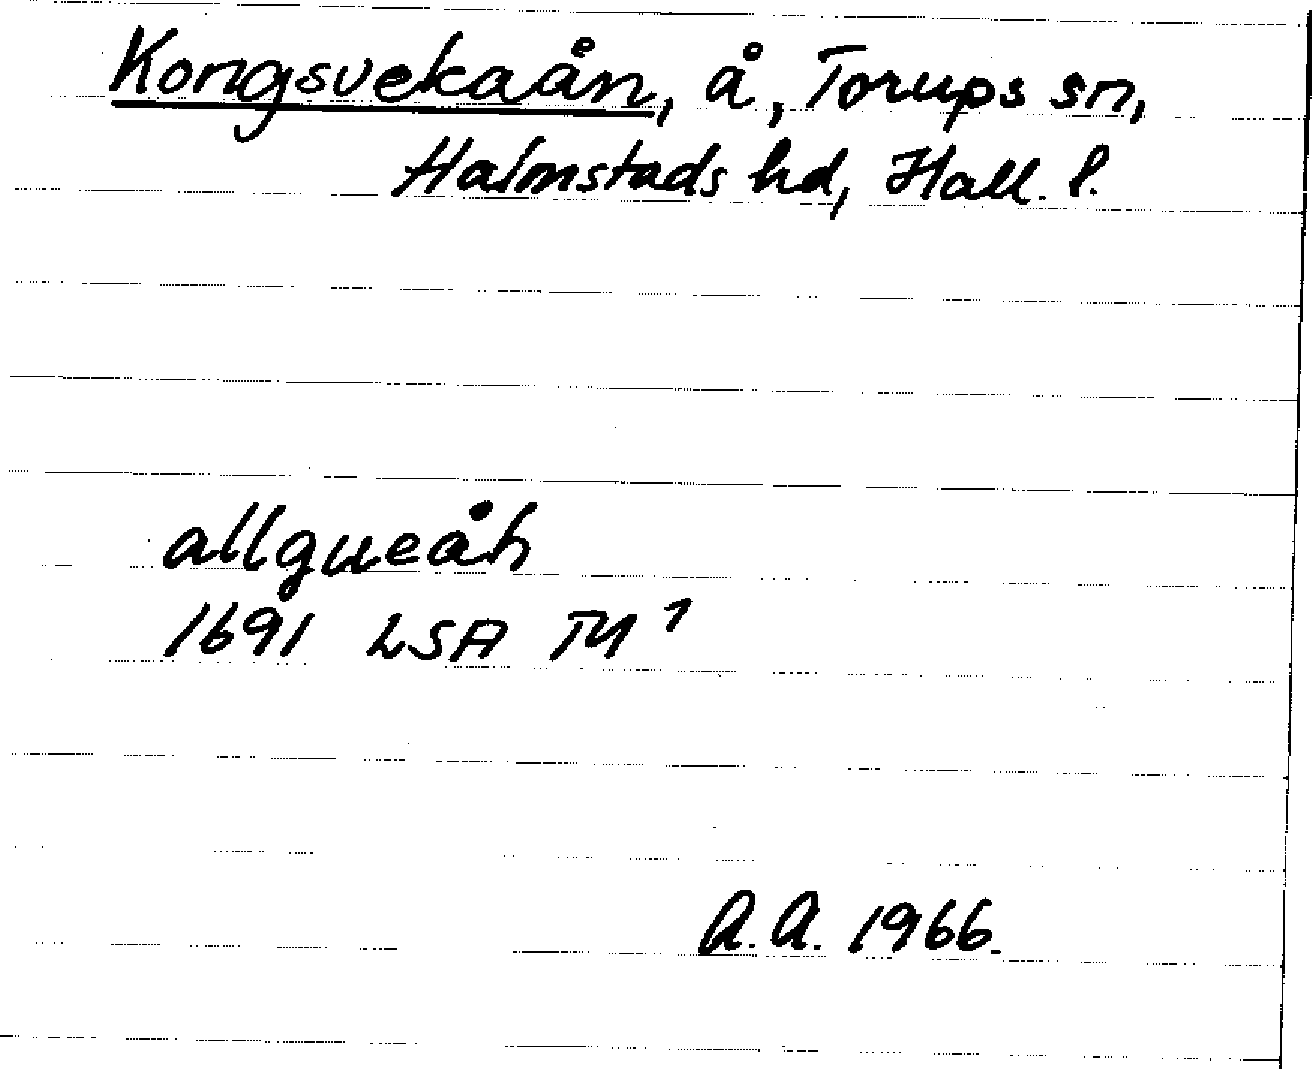 Kongsvekaån, å, Torups sn,
Halmstads hd, Hall. l.
allgueåh
1691 LSA T4¹
A.A. 1966.